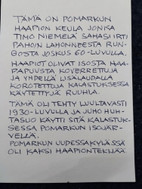 TÄMÄ ON POMARKUN
HAAPION KEULA JONKA
TINO NIEMELÄ SAHASI IRTI
PAHOIN LAHONNEESTA RUN-
GOSTA JOSKUS 60-LUVULLA.
HAAPIOT OLIVAT ISOSTA HAA-
PAPUUSTA KOVERRETTUJA
JA YHDELLÄ LISÄLAUDALLA
KOROTETTUJA KALASTUKSESSA
KÄYTETTYJÄ RUUHIA.
TÄMÄ OLI TEHTY LUULTAVASTI
1930-LUVULLA JA JUHO HUH-
TASUO KÄYTTI SITÄ KALASTUK-
SESSA POMARKUN ISOJÄR-
VELLÄ.
POMARKUN UUDESSAKYLÄSSÄ
OLI KAKSI HAAPIONTEKIJÄÄ